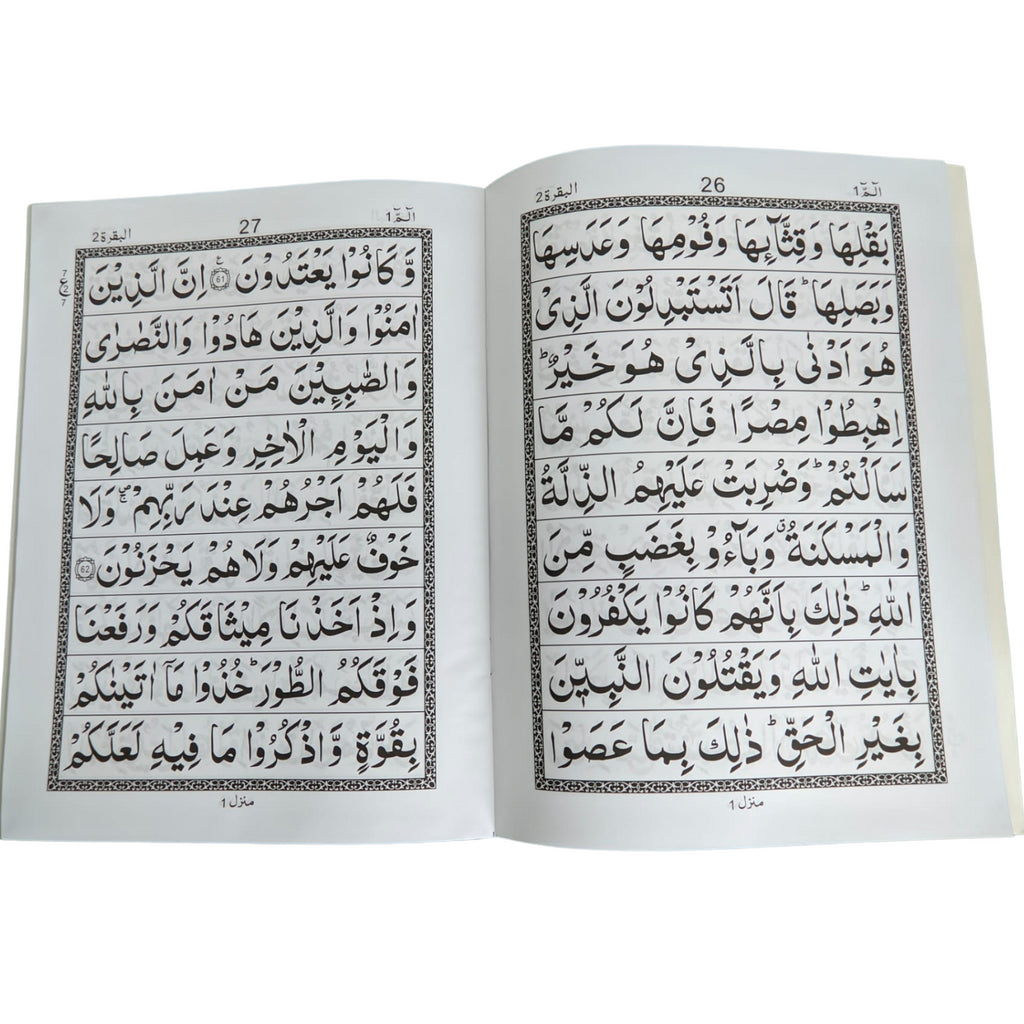 البقرة 2
26
الٓمّٓ 1
بَقْلِهَا وَقِثَّآئِهَا وَفُوْمِهَا وَعَدَسِهَا
وَبَصَلِهَا ؕ قَالَ اَتَسْتَبْدِلُوْنَ الَّذِیْ
هُوَ اَدْنٰی بِالَّذِیْ هُوَ خَیْرٌ ؕ
اِهْبِطُوْا مِصْرًا فَاِنَّ لَكُمْ مَّا
سَاَلْتُمْ ؕ وَضُرِبَتْ عَلَیْهِمُ الذِّلَّةُ
وَالْمَسْكَنَةُ ۗ وَبَآءُوْ بِغَضَبٍ مِّنَ
اللّٰهِ ؕ ذٰلِكَ بِاَنَّهُمْ كَانُوْا یَكْفُرُوْنَ
بِاٰیٰتِ اللّٰهِ وَیَقْتُلُوْنَ النَّبِیّٖنَ
بِغَیْرِ الْحَقِّ ؕ ذٰلِكَ بِمَا عَصَوْا
منزل 1
البقرة 2
27
الٓمّٓ 1
وَّكَانُوْا یَعْتَدُوْنَ 61 ع اِنَّ الَّذِیْنَ
7 ع 2 7
اٰمَنُوْا وَالَّذِیْنَ هَادُوْا وَالنَّصٰرٰی
وَالصّٰبِـِٕیْنَ مَنْ اٰمَنَ بِاللّٰهِ
وَالْیَوْمِ الْاٰخِرِ وَعَمِلَ صَالِحًا
فَلَهُمْ اَجْرُهُمْ عِنْدَ رَبِّهِمْ ۪ۚ وَلَا
خَوْفٌ عَلَیْهِمْ وَلَا هُمْ یَحْزَنُوْنَ 62
وَاِذْ اَخَذْنَا مِیْثَاقَكُمْ وَرَفَعْنَا
فَوْقَكُمُ الطُّوْرَ ؕ خُذُوْا مَاۤ اٰتَیْنٰكُمْ
بِقُوَّةٍ وَّاذْكُرُوْا مَا فِیْهِ لَعَلَّكُمْ
منزل 1